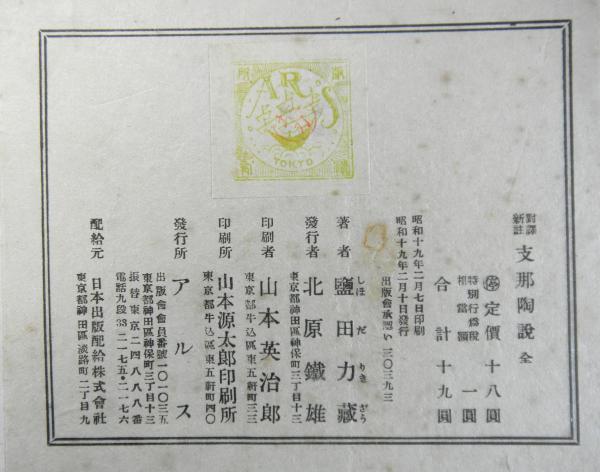 對譯
新註
支那陶說 全
㊞定價 十八圓
特別行爲稅
相當額
一圓
合計 十九圓
昭和十九年二月七日印刷
昭和十九年二月十日發行
出版會承認い三〇三九三
著者 鹽田力藏
しほ だ りき ざう
發行者 北原鐵雄
東京都神田區神保町三丁目十三
印刷者 山本英治郎
東京都牛込區東五軒町三三
印刷所 山本源太郎印刷所
東京都牛込區東五軒町四〇
發行所 アルス
出版會會員番號一〇一〇三五
東京都神田區神保町三丁目十三
振替東京二四八八八番
電話九段33二一七五・二一七六
配給元 日本出版配給株式會社
東京都神田區淡路町二丁目九
ARS
TOKYO